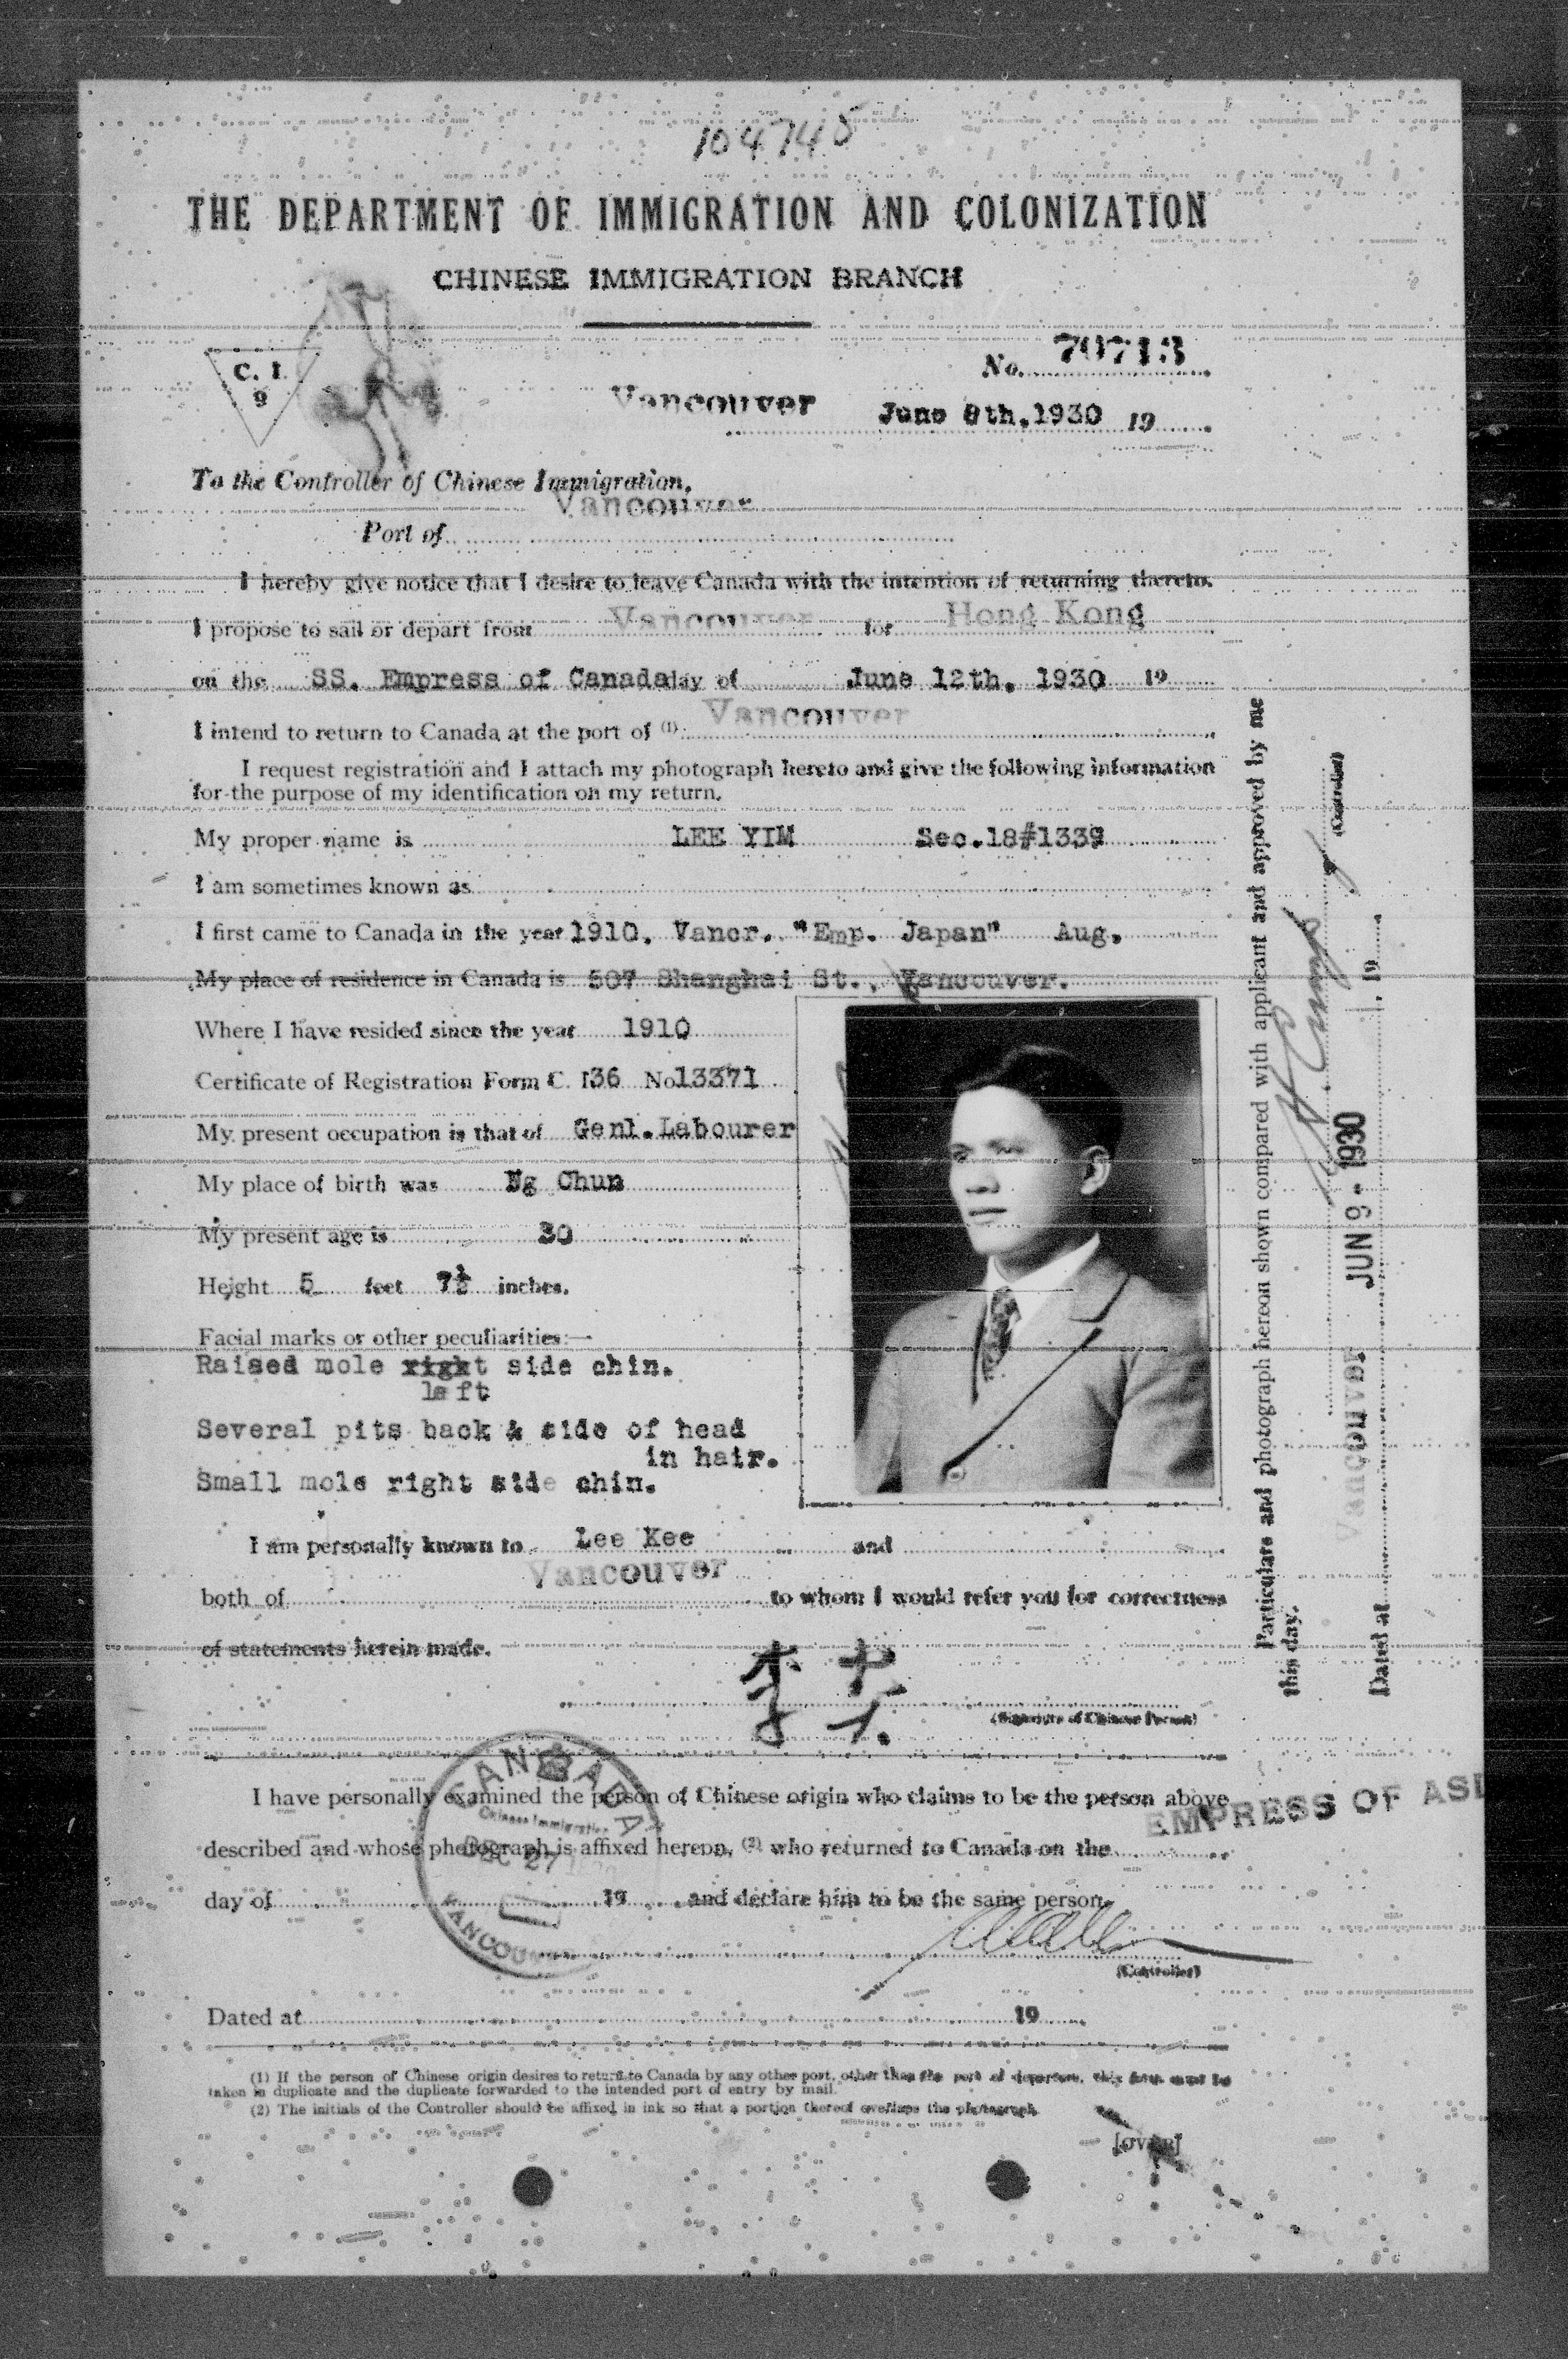 104745
THE DEPARTMENT OF IMMIGRATION AND COLONIZATION
CHINESE IMMIGRATION BRANCH
C. I.
9
No. 70713
Vancouver June 9th, 1930 19
To the Controller of Chinese Immigration,
Vancouver
Port of
I hereby give notice that I desire to leave Canada with the intention of returning thereto.
I propose to sail or depart from Vancouver for Hong Kong
on the SS. Empress of Canada day of June 12th, 1930 19
I intend to return to Canada at the port of (1) Vancouver
I request registration and I attach my photograph hereto and give the following information
for the purpose of my identification on my return.
My proper name is LEE YIM Sec.18#1339
I am sometimes known as
I first came to Canada in the year 1910, Vancr. "Emp. Japan" Aug,
My place of residence in Canada is 507 Shanghai St., Vancouver.
Where I have resided since the year 1910
Certificate of Registration Form C. I 36 No 13371
My present occupation is that of Genl.Labourer
My place of birth was Ng Chun
My present age is 30
Height 5 feet 7½ inches.
Facial marks or other peculiarities:—
Raised mole right side chin.
left
Several pits back & side of head
in hair.
Small mole right side chin.
I am personally known to Lee Kee and
Vancouver
both of to whom I would refer you for correctness
of statements herein made.
(Signature of Chinese Person)
I have personally examined the person of Chinese origin who claims to be the person above
EMPRESS OF ASI
described and whose photograph is affixed hereon, (2) who returned to Canada on the
day of 19 and declare him to be the same person.
(Controller)
Dated at 19
CANADA
Chinese Immigration
DEC 27
VANCOUV
(1) If the person of Chinese origin desires to return to Canada by any other port, other than the port of departure, this form must be
taken in duplicate and the duplicate forwarded to the intended port of entry by mail.
(2) The initials of the Controller should be affixed in ink so that a portion thereof overlaps the photograph.
[OVER]
Particulars and photograph hereon shown compared with applicant and approved by me
this day.
(Controller)
Dated at Vancouver JUN 9 - 1930 19